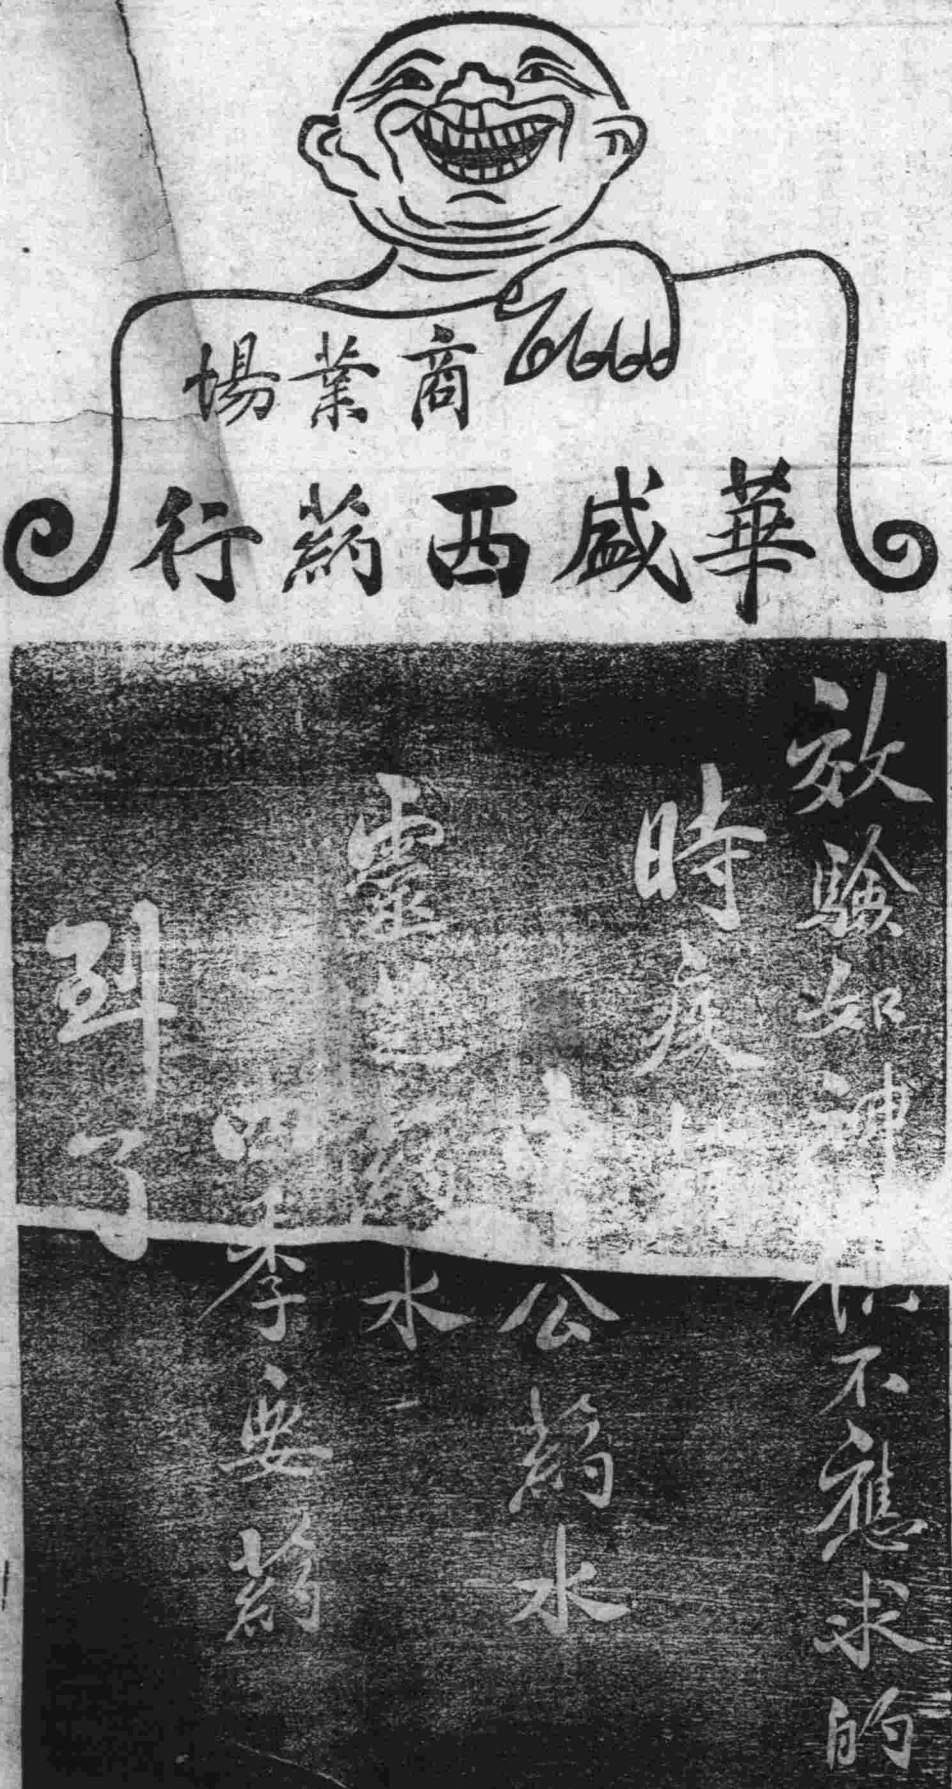 商業場
華盛西葯行
效驗如神供不應求的
時疫
公葯水
靈芝葯水
四季要葯
到了